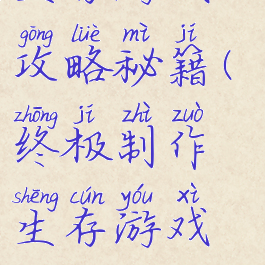 gōng lüè mì jí
攻略秘籍(
zhōng jí zhì zuò
终极制作
shēng cún yóu xì
生存游戏